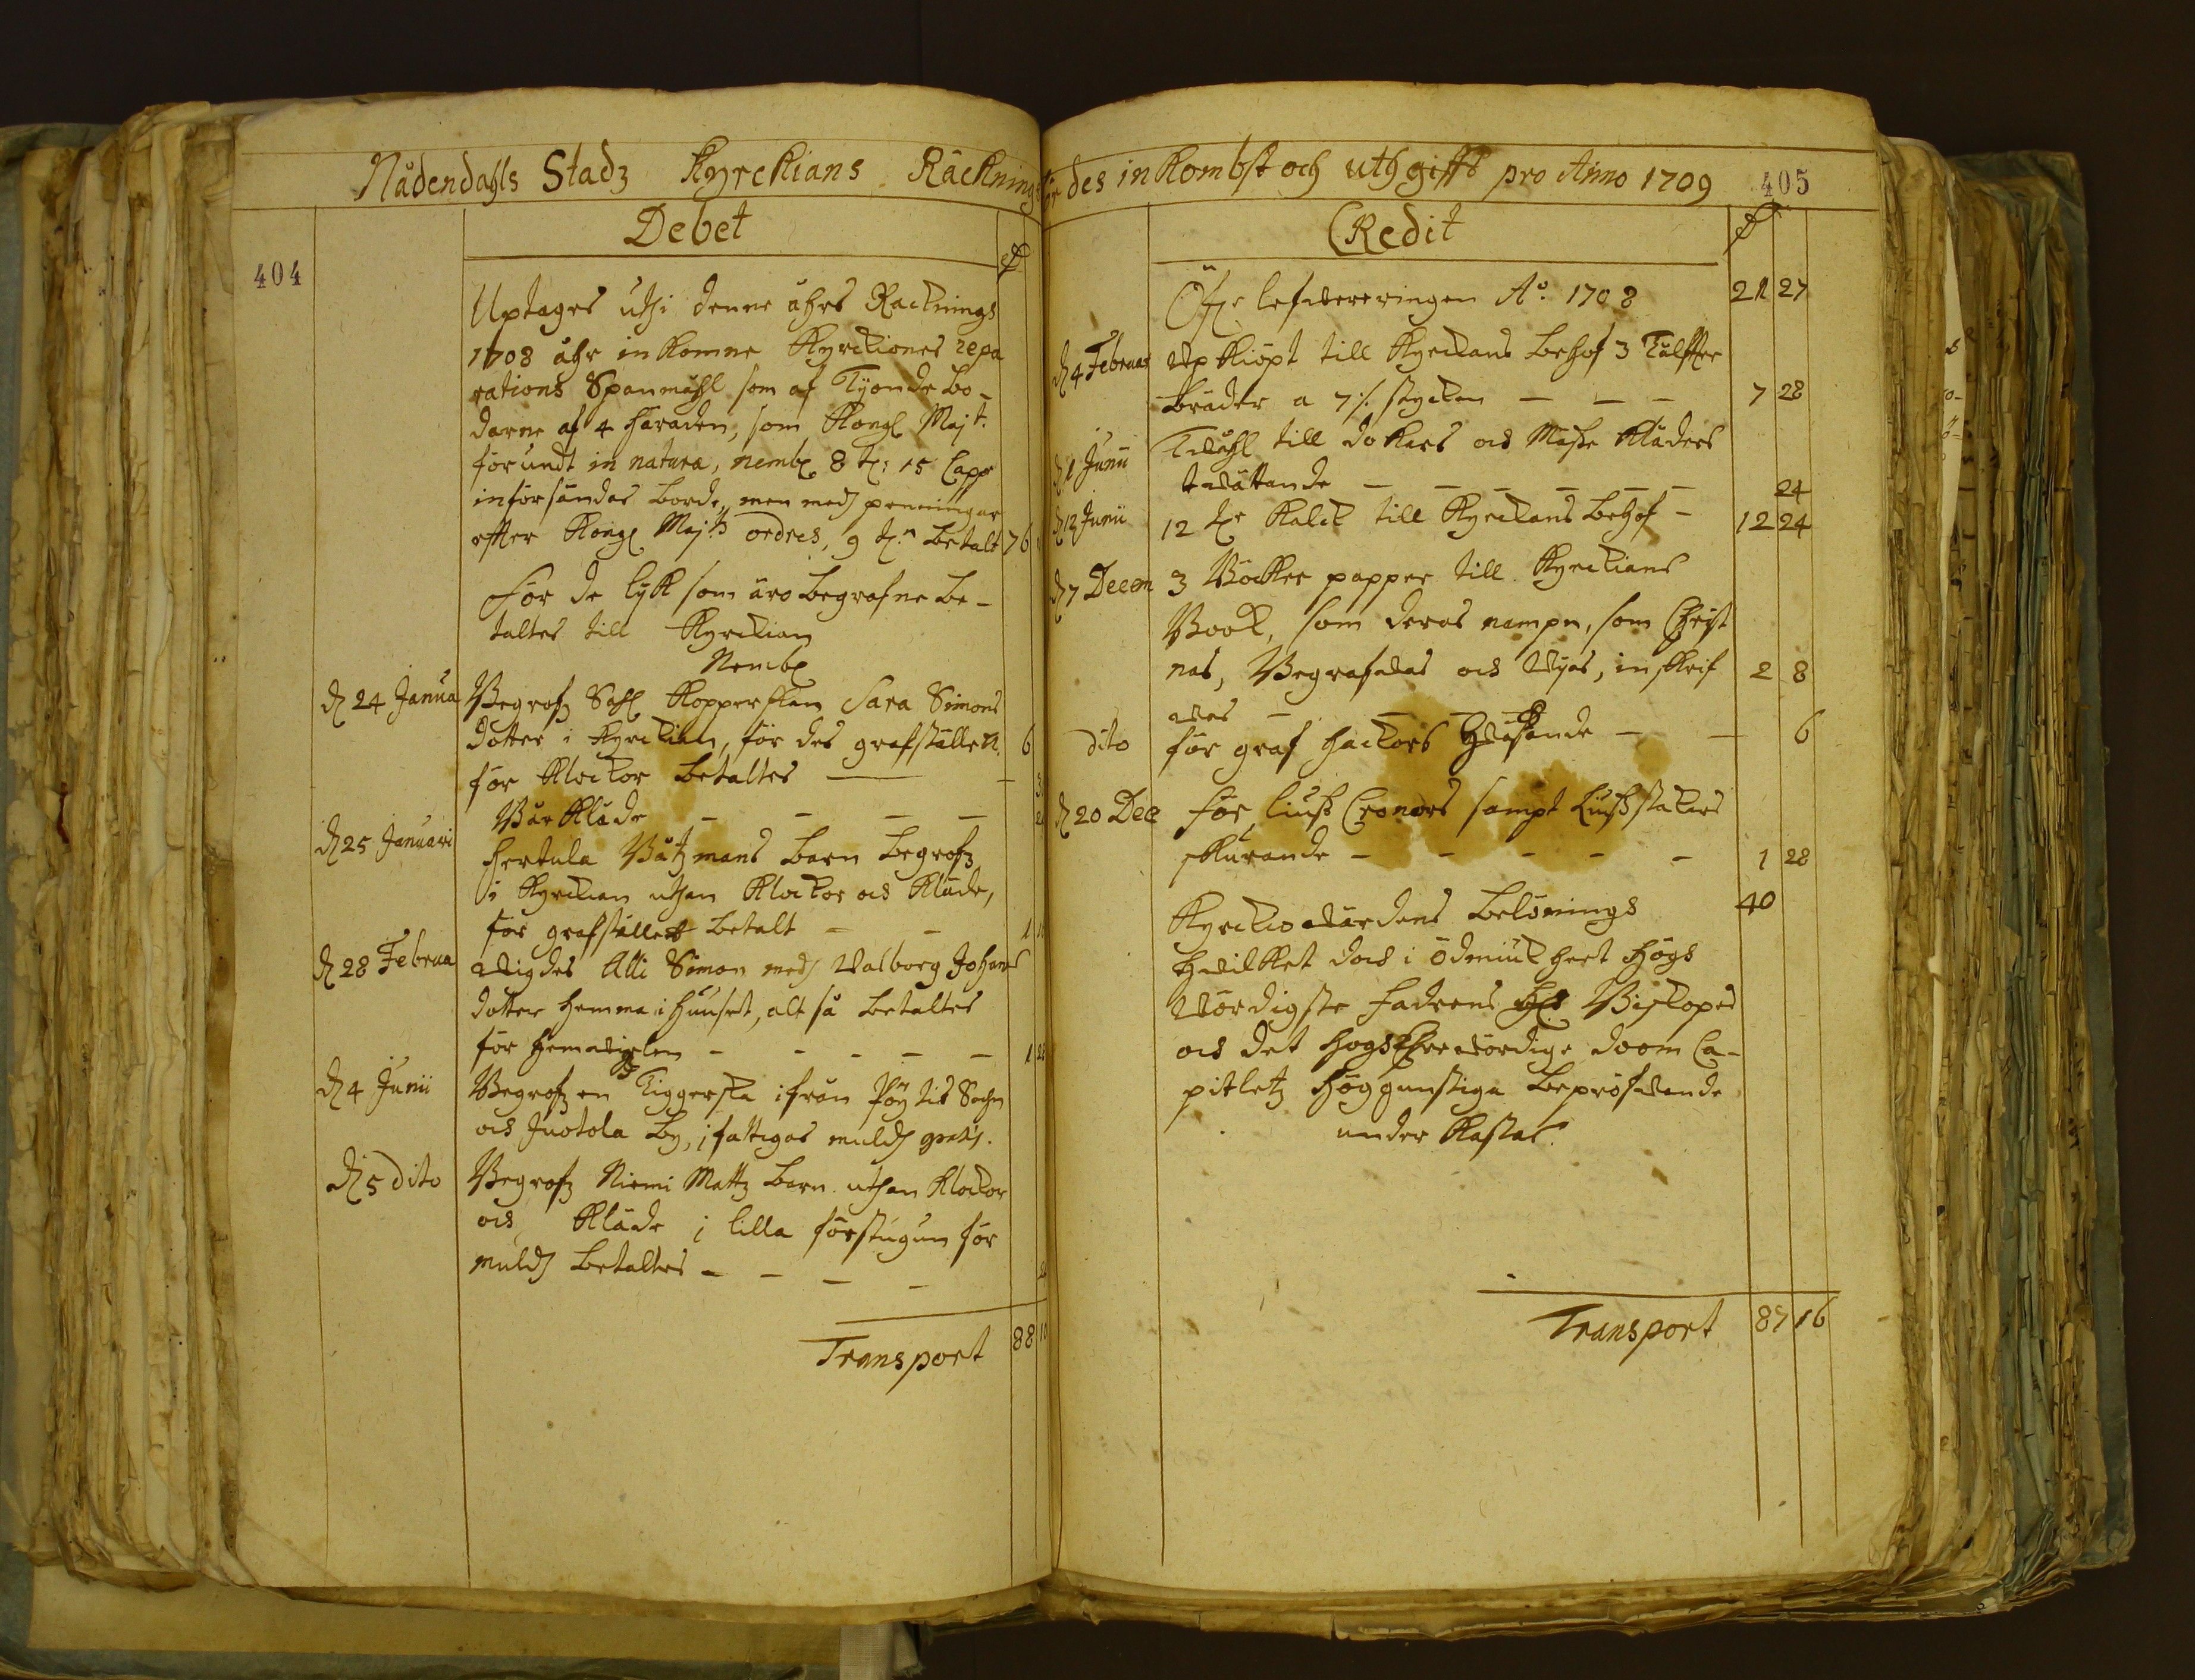 Nådendahls Stadz Kyrckians Räckning
404
Debet
Uptages uthi denne åhrs Racknings
1708 åhr inkomne Kyrckiones repa
rations Spanmåhl som af Tyonde Bo-
darne af 4 häraden, som Kongl Majt:
förundt in natura, nembl 8 t: 15 Capp
införsändas borde, men medh penningar
effter Kongl Majtz ordres, 9 t:n betalt 76
För de lijk som äro begrafne be-
taltes till Kyrckian
Nembl
d 24 Janua Begrofz Sahl Kopperslan Sara Simons
dotter i Kyrckian, för des grafställe 6
för Klockor betaltes
Bår Kläde
d 25 Januari Hertula Båtzmans barn begrofz
i Kyrckian uthan Klockor och Kläde,
för grafstället betalt 1
d 28 Februa wigdes Alli Simon medh Valborg Johans
dotter hemma i Huuset, alt så betaltes
för hemwigslen 1
d 4 Junii Begrofz en Tiggerska ifrån Pöytis Sochn
och Juotola by, i fattigas muldh gratis.
d 5 dito Begrofz Niemi Mattz barn uthan Klockor
och Kläde i lilla förstugun för
muldh betaltes
Transport 88
des inkombst och uthgifft pro Anno 1709
405
Credit
Öfr lefwereringen Ao. 1708 21 27
d 4 Februar Upkiöpt till Kyrckans behof 3 Tålffter
bräder a 7 ./. stycken 7 28
d 1 Junii Twåhl till dokars och Mässe Kläders
twättande 24
d 12 Junii 12 tr Kalck till Kyrckans behof 12 24
d 7 Decem 3 Böcker papper till Kyrckians
Book, som deras nampn, som Christ
nas, Begrafwas och Wijas, inskrif 2 8
was
dito för graf hackors hwässande 6
d 20 Dec för liuss Cronors sampt Liusstakars
skurande 1 28
Kyrckiowärdens belönings 40
hwilket doch i ödmiukheet högs
Wördigste fadrens Hr Biskopes
och det högsEhrewördige doom Ca-
pitletz höggunstiga beprofwande
under kastas.
Transport 87 16